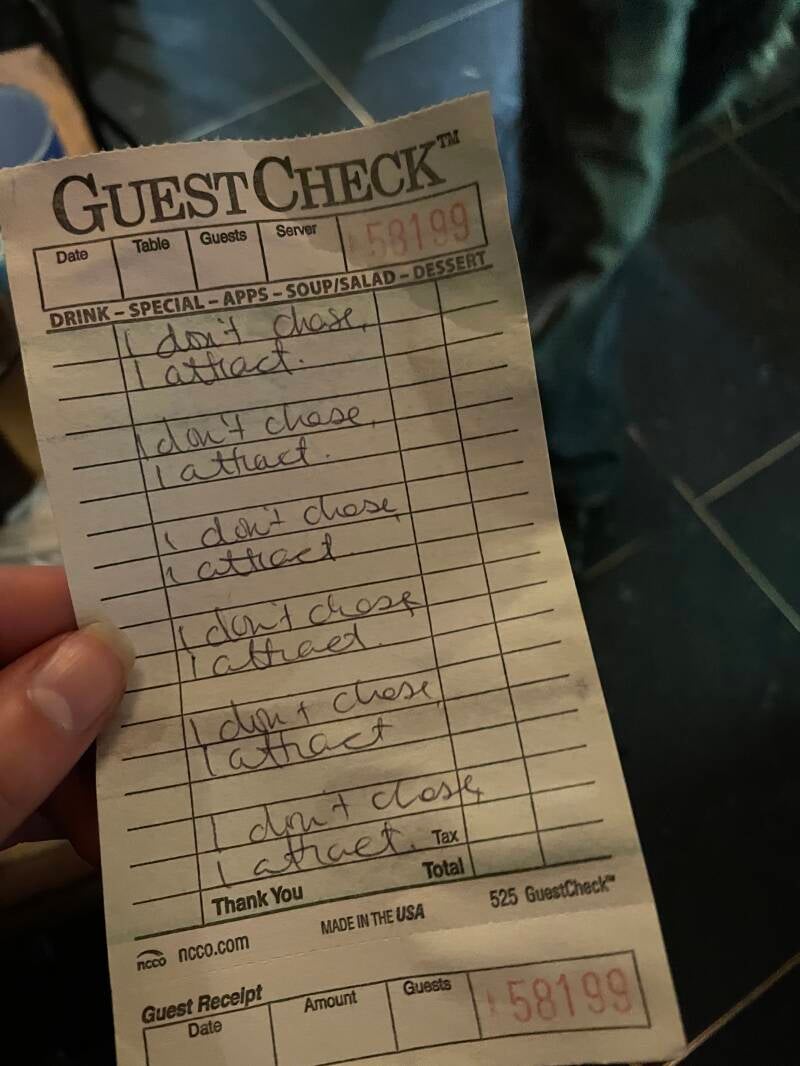 GUESTCHECK™
Date Table Guests Server 58199
DRINK – SPECIAL – APPS – SOUP/SALAD – DESSERT
I don't chase,
I attract.
I don't chase,
I attract.
I don't chase,
I attract.
I don't chase
I attract.
I don't chase,
I attract
I don't chase,
I attract. Tax
Thank You Total
ncco ncco.com MADE IN THE USA 525 GuestCheck™
Guest Receipt
Date Amount Guests 58199